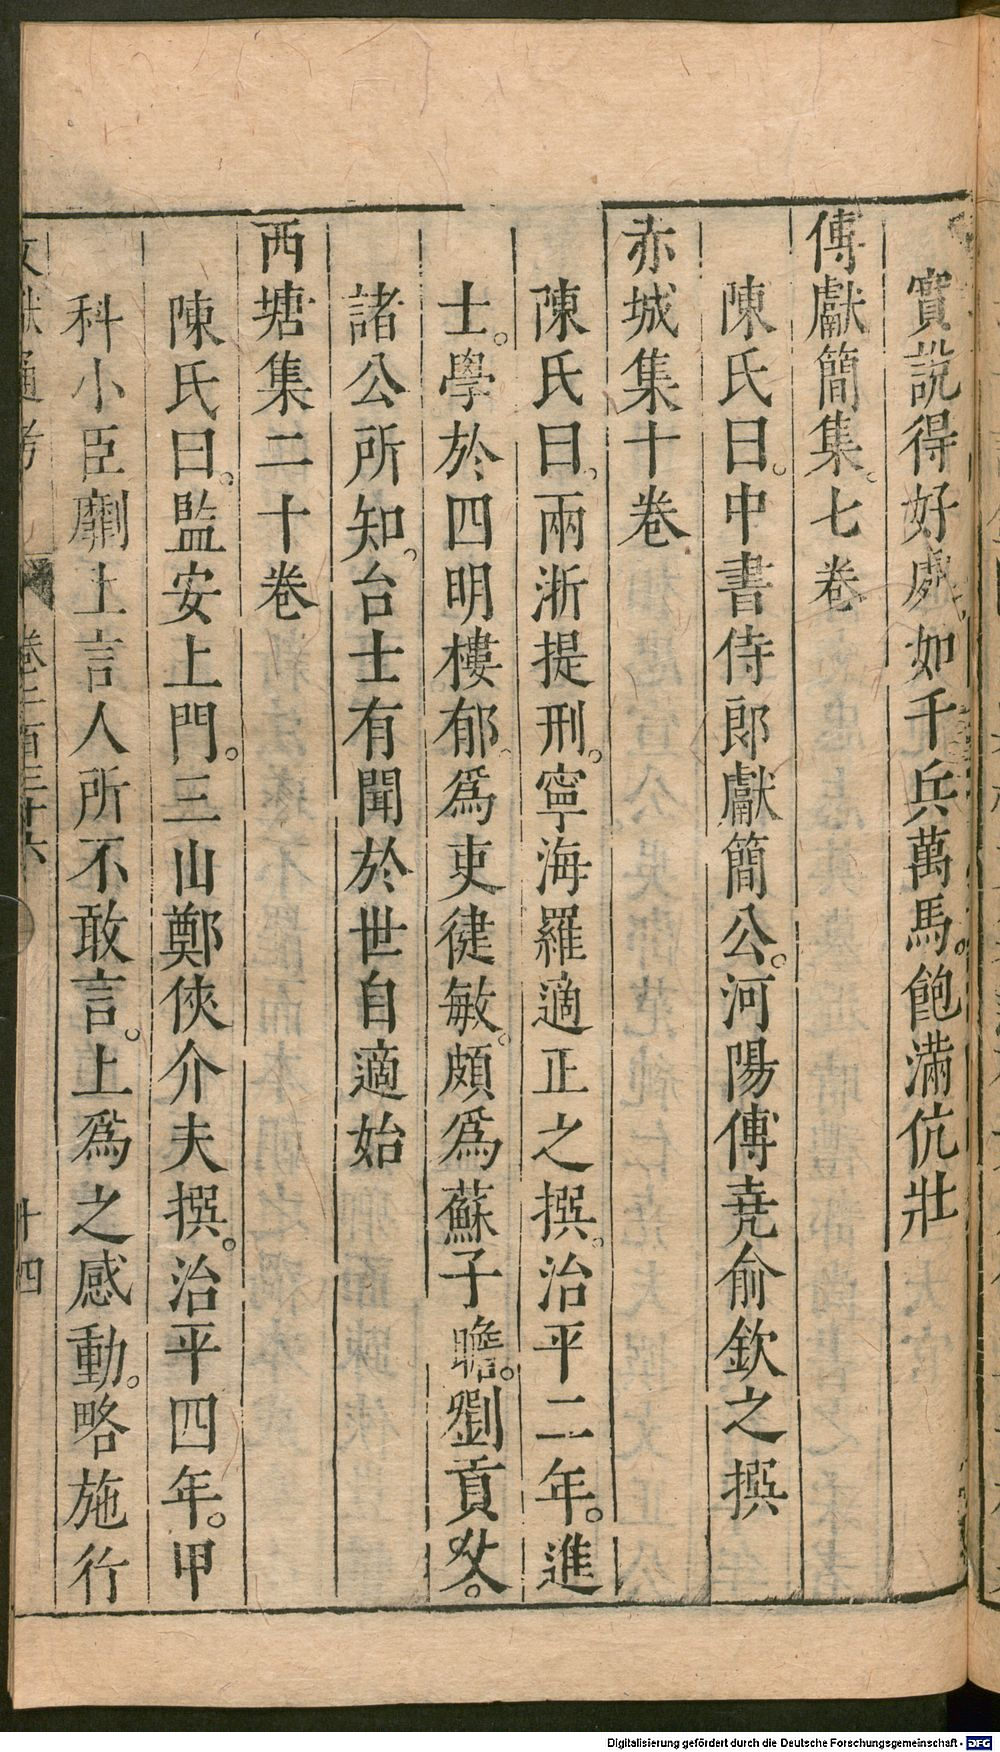 實說得好處如千兵萬馬。飽滿伉壯
傅獻簡集。七卷
陳氏曰。中書侍郎獻簡公。河陽傅堯俞欽之撰
赤城集十卷
陳氏曰。兩浙提刑。寧海羅適正之撰。治平二年。進
士。學於四明樓郁。爲吏徤敏。頗爲蘇子瞻。劉貢父。
諸公所知。台士有聞於世自適始
西塘集二十卷
陳氏曰。監安上門。三山鄭俠介夫撰。治平四年。甲
科小臣劘上言人所不敢言。上爲之感動。略施行
文獻通考 卷二百三十六 十四
Digitalisierung gefördert durch die Deutsche Forschungsgemeinschaft - DFG